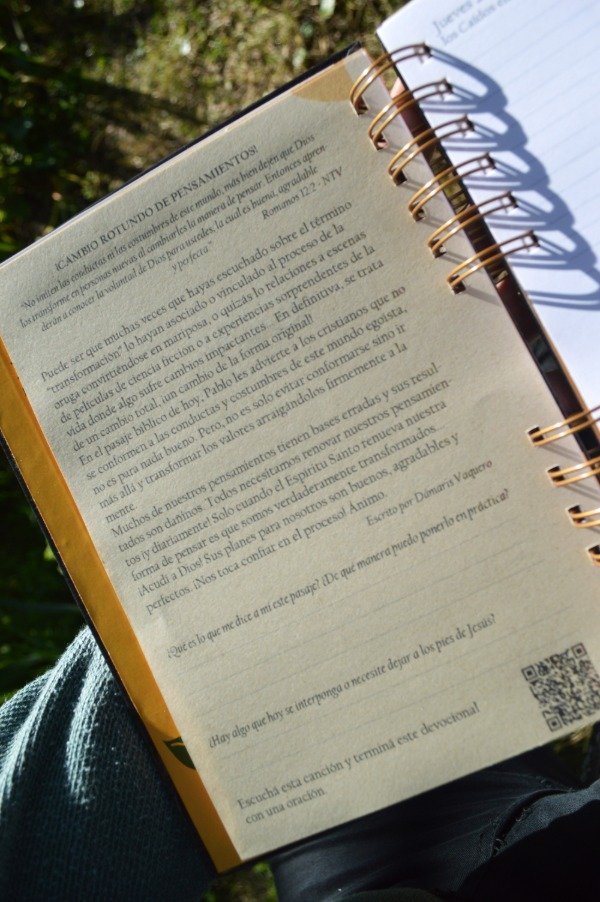 ¡CAMBIO ROTUNDO DE PENSAMIENTOS!
"No imiten las conductas ni las costumbres de este mundo, más bien dejen que Dios
los transforme en personas nuevas al cambiarles la manera de pensar. Entonces apren
derán a conocer la voluntad de Dios para ustedes, la cual es buena, agradable
y perfecta".
Romanos 12:2 - NTV
Puede ser que muchas veces que hayas escuchado sobre el término
"transformación" lo hayan asociado o vinculado al proceso de la
oruga convirtiéndose en mariposa, o quizás lo relaciones a escenas
de películas de ciencia ficción o a experiencias sorprendentes de la
vida donde algo sufre cambios impactantes. En definitiva, se trata
de un cambio total, ¡un cambio de la forma original!
En el pasaje bíblico de hoy, Pablo les advierte a los cristianos que no
se conformen a las conductas y costumbres de este mundo egoísta,
no es para nada bueno. Pero, no es solo evitar conformarse sino ir
más allá y transformar los valores arraigándolos firmemente a la
mente.
Muchos de nuestros pensamientos tienen bases erradas y sus resul-
tados son dañinos. Todos necesitamos renovar nuestros pensamien-
tos ¡y diariamente! Solo cuando el Espíritu Santo renueva nuestra
forma de pensar es que somos verdaderamente transformados.
¡Acudí a Dios! Sus planes para nosotros son buenos, agradables y
perfectos. ¡Nos toca confiar en el proceso! Ánimo.
Escrito por Dámaris Vaquero
¿Qué es lo que me dice a mí este pasaje? ¿De qué manera puedo ponerlo en práctica?
¿Hay algo que hoy se interponga o necesite dejar a los pies de Jesús?
Escuchá esta canción y terminá este devocional
con una oración
Jueves
los Caídos en